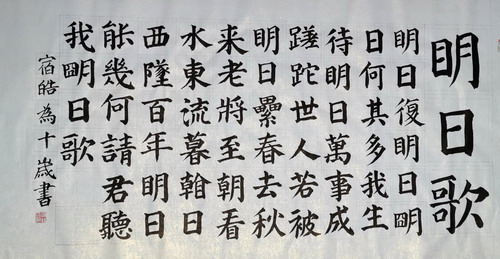 明日歌
明日復明日明
日何其多我生
待明日萬事成
蹉跎世人若被
明日纍春去秋
来老將至朝看
水東流暮看日
西墜百年明日
能幾何請君聽
我明日歌
宿皓為十歲書